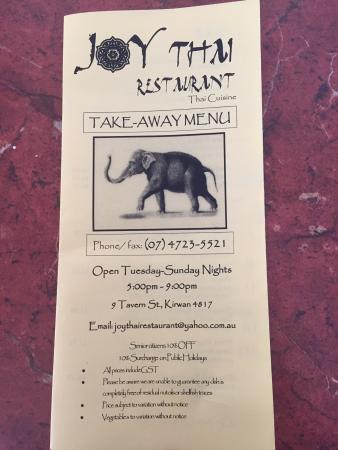 JOY THAI
RESTAURANT
Thai Cuisine
TAKE-AWAY MENU
Phone/fax: (07) 4723-5521
Open Tuesday-Sunday Nights
5:00pm - 9:00pm
9 Tavern St, Kirwan 4817
Email: joythairestaurant@yahoo.com.au
Senior citizens 10% OFF
10% Surcharge on Public Holidays
• All prices include GST
• Please be aware we are unable to guarantee any dish is
completely free of residual nuts oils or shellfish traces
• Price subject to variation without notice
• Vegetables to variation without notice